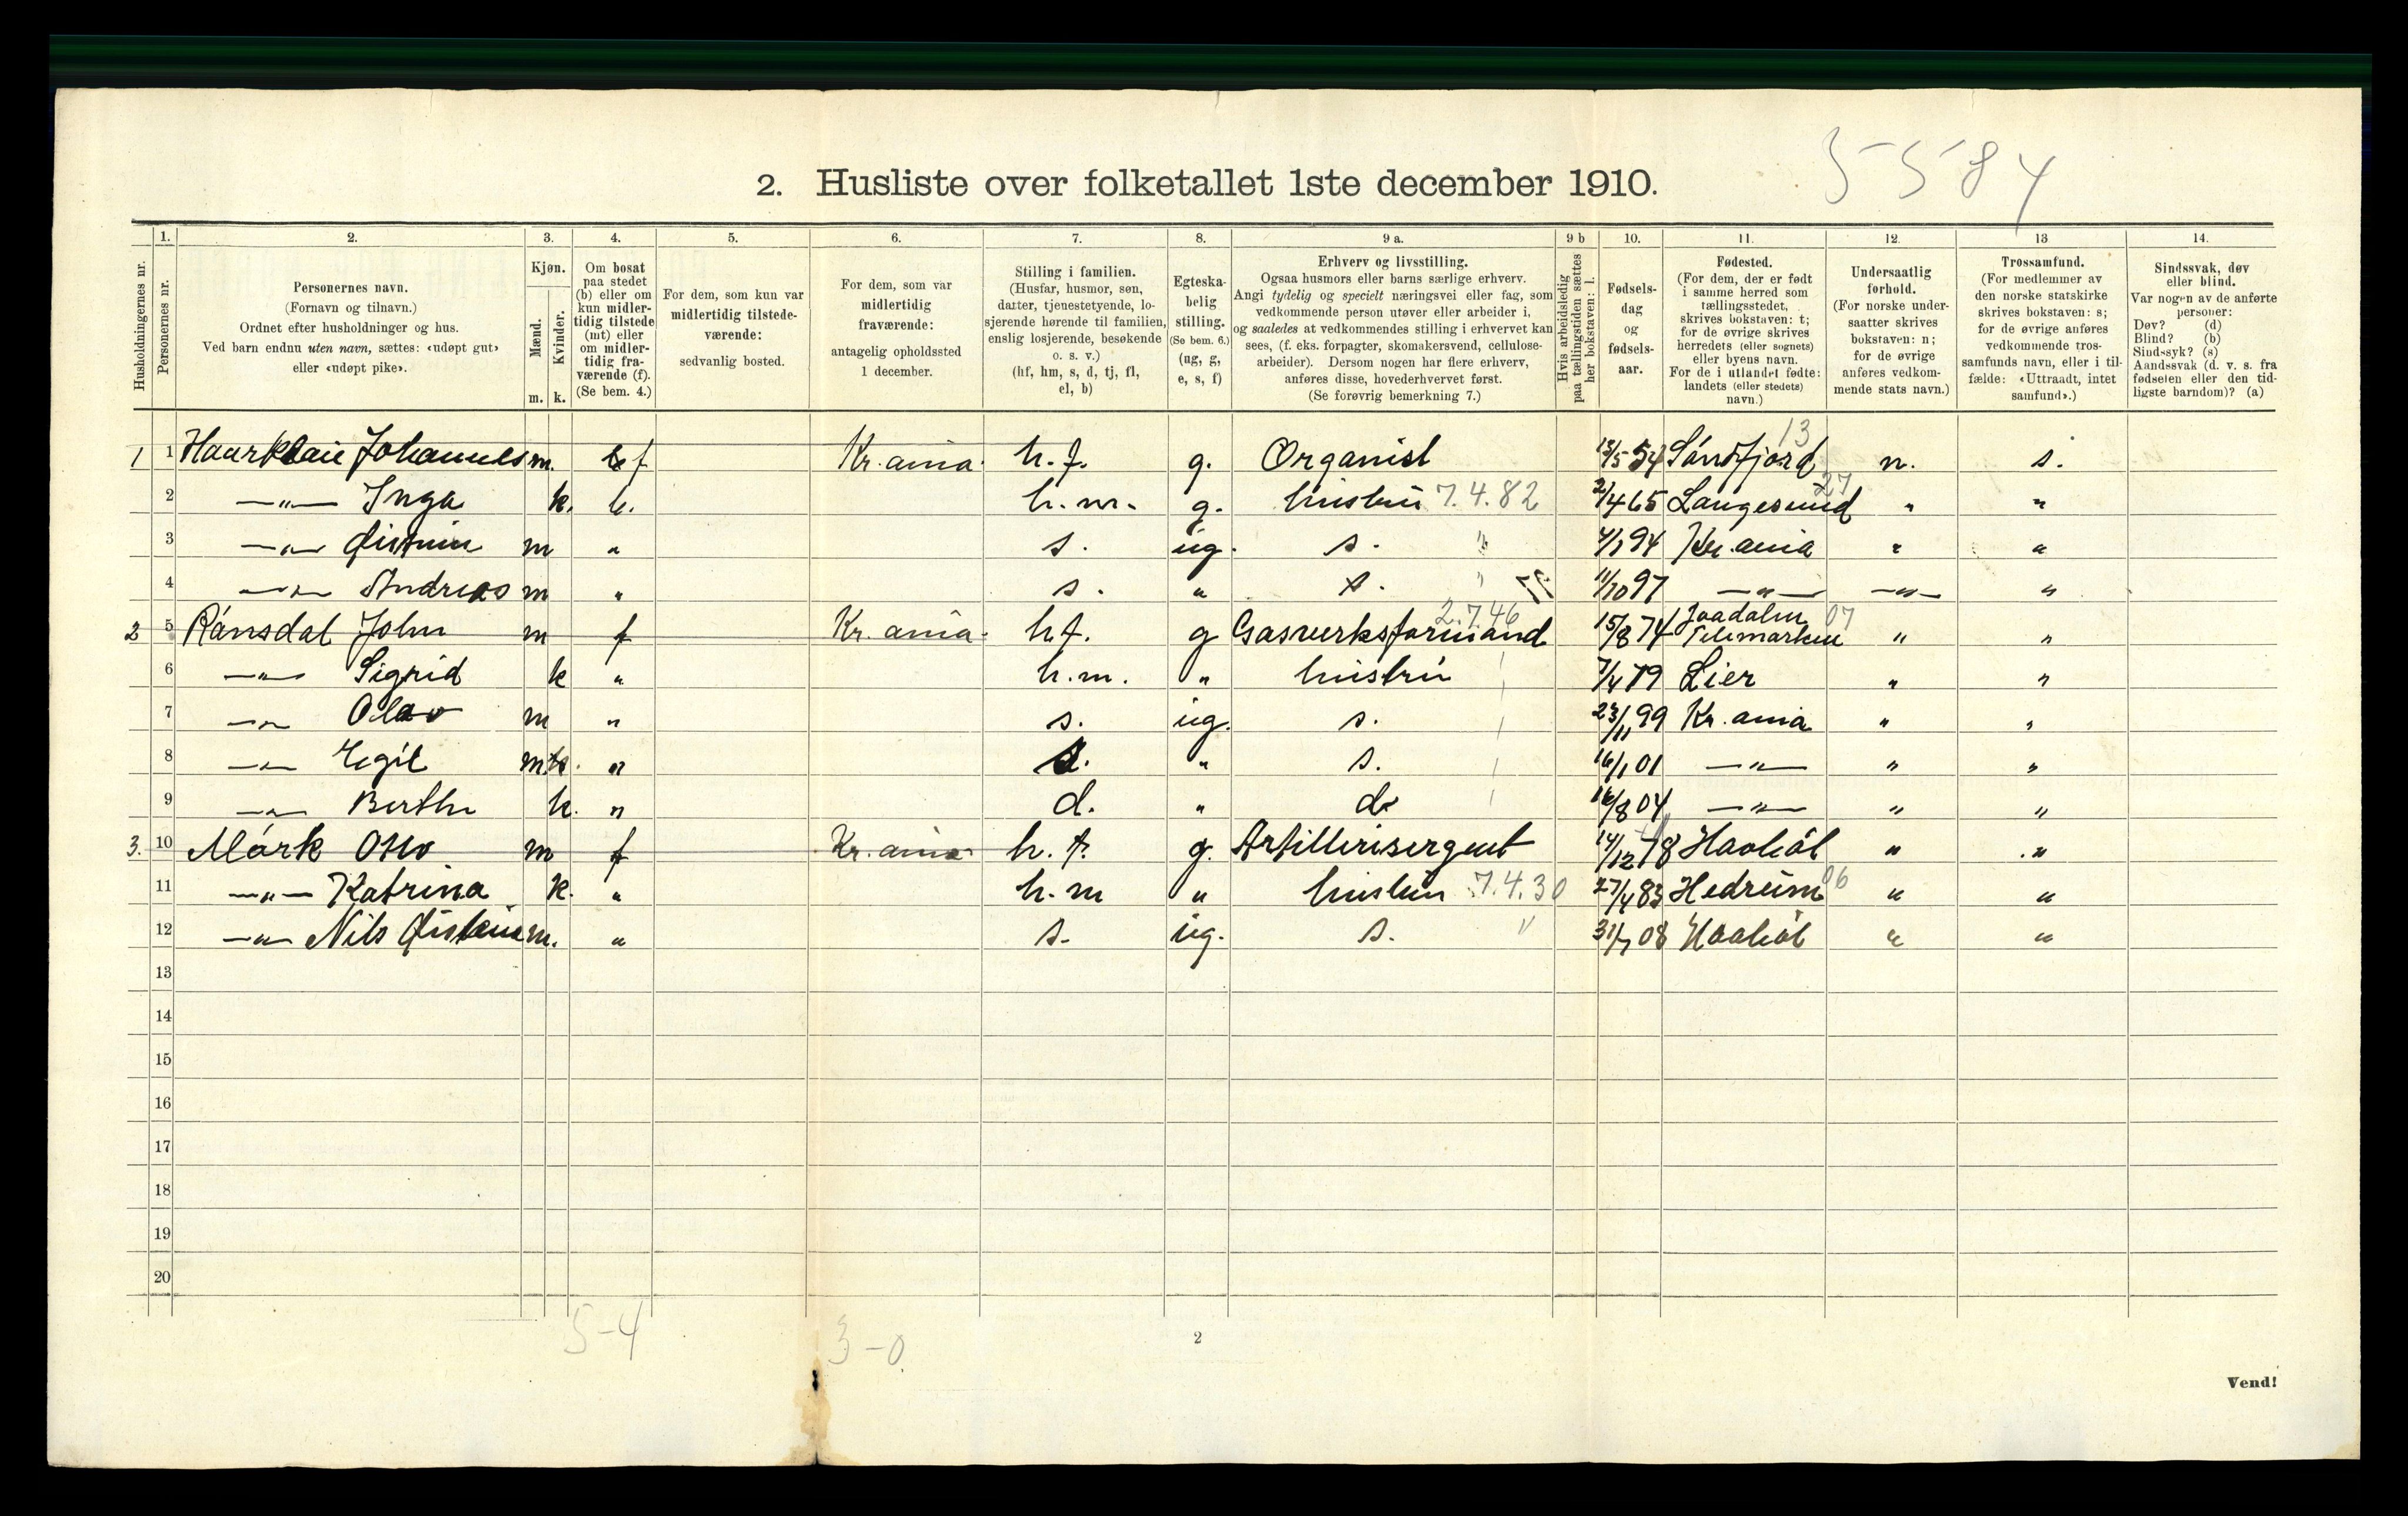 5584
2. Husliste over folketallet 1ste december 1910.
Husholdningernes nr.
1. Personernes nr.
2. Personernes navn.
(Fornavn og tilnavn.)
Ordnet efter husholdninger og hus.
Ved barn endnu uten navn, sættes: «udøpt gut»
eller «udøpt pike».
3. Kjøn.
Mænd. Kvinder.
m. k.
4. Om bosat
paa stedet
(b) eller om
kun midler-
tidig tilstede
(mt) eller
om midler-
tidig fra-
værende (f).
(Se bem. 4.)
5. For dem, som kun var
midlertidig tilstede-
værende:
sedvanlig bosted.
6. For dem, som var
midlertidig
fraværende:
antagelig opholdssted
1 december.
7. Stilling i familien.
(Husfar, husmor, søn,
datter, tjenestetyende, lo-
sjerende hørende til familien,
enslig losjerende, besøkende
o. s. v.)
(hf, hm, s, d, tj, fl,
el, b)
8. Egteska-
belig
stilling.
(Se bem. 6.)
(ug, g,
e, s, f)
9 a. Erhverv og livsstilling.
Ogsaa husmors eller barns særlige erhverv.
Angi tydelig og specielt næringsvei eller fag, som
vedkommende person utøver eller arbeider i,
og saaledes at vedkommendes stilling i erhvervet kan
sees, (f. eks. forpagter, skomakersvend, cellulose-
arbeider). Dersom nogen har flere erhverv,
anføres disse, hovederhvervet først.
(Se forøvrig bemerkning 7.)
9 b Hvis arbeidsledig
paa tællingstiden sættes
her bokstaven: l.
10. Fødsels-
dag
og
fødsels-
aar.
11. Fødested.
(For dem, der er født
i samme herred som
tællingsstedet,
skrives bokstaven: t;
for de øvrige skrives
herredets (eller sognets)
eller byens navn.
For de i utlandet fødte:
landets (eller stedets)
navn.)
12. Undersaatlig
forhold.
(For norske under-
saatter skrives
bokstaven: n;
for de øvrige
anføres vedkom-
mende stats navn.)
13 Trossamfund.
(For medlemmer av
den norske statskirke
skrives bokstaven: s;
for de øvrige anføres
vedkommende tros-
samfunds navn, eller i til-
fælde: «Uttraadt, intet
samfund».)
14. Sindssvak, døv
eller blind.
Var nogen av de anførte
personer:
Døv? (d)
Blind? (b)
Sindssyk? (s)
Aandssvak (d. v. s. fra
fødselen eller den tid-
ligste barndom)? (a)
1 1 Johannes m. f Kr.ania. h.f. g. Organist 13/5 54 13 n. s.
2 —"— Inga k. b. h.m. g. hustru 7.4.82 65 Langesund 27 " "
3 —"— m " s. ug. s. " 94 Kr.ania " "
4 —"— Andreas m " s. " s. " 11/10 97 —"— —"— "
2 5 Ramsdal John m f Kr.ania. hf. g Gasverksformand 2.7.46 15/8 74 Telemarken 07 " "
6 —"— Sigrid k " h.m. " hustru 7/4 79 Lier " "
7 —"— Olav m " s. ug. s. 23/11 99 Kr.ania " "
8 —"— Egil m " s. " s. 16/1 01 —"— " "
9 —"— Berthe k. " d. " d. 16/8 04 —"— " "
3. 10 Mørk Otto m f Kr.ania h.f. g. Artillerisergent 14/12 78 " "
11 —"— Katrina k. " h.m " hustru 7.4.30 27/4 83 Hedrum 06 " "
12 —"— Nils Øistein m. " s. ug. s. " 31/7 08 " "
13
14
15
16
17
18
19
20
5-4
3-0
2
Vend!